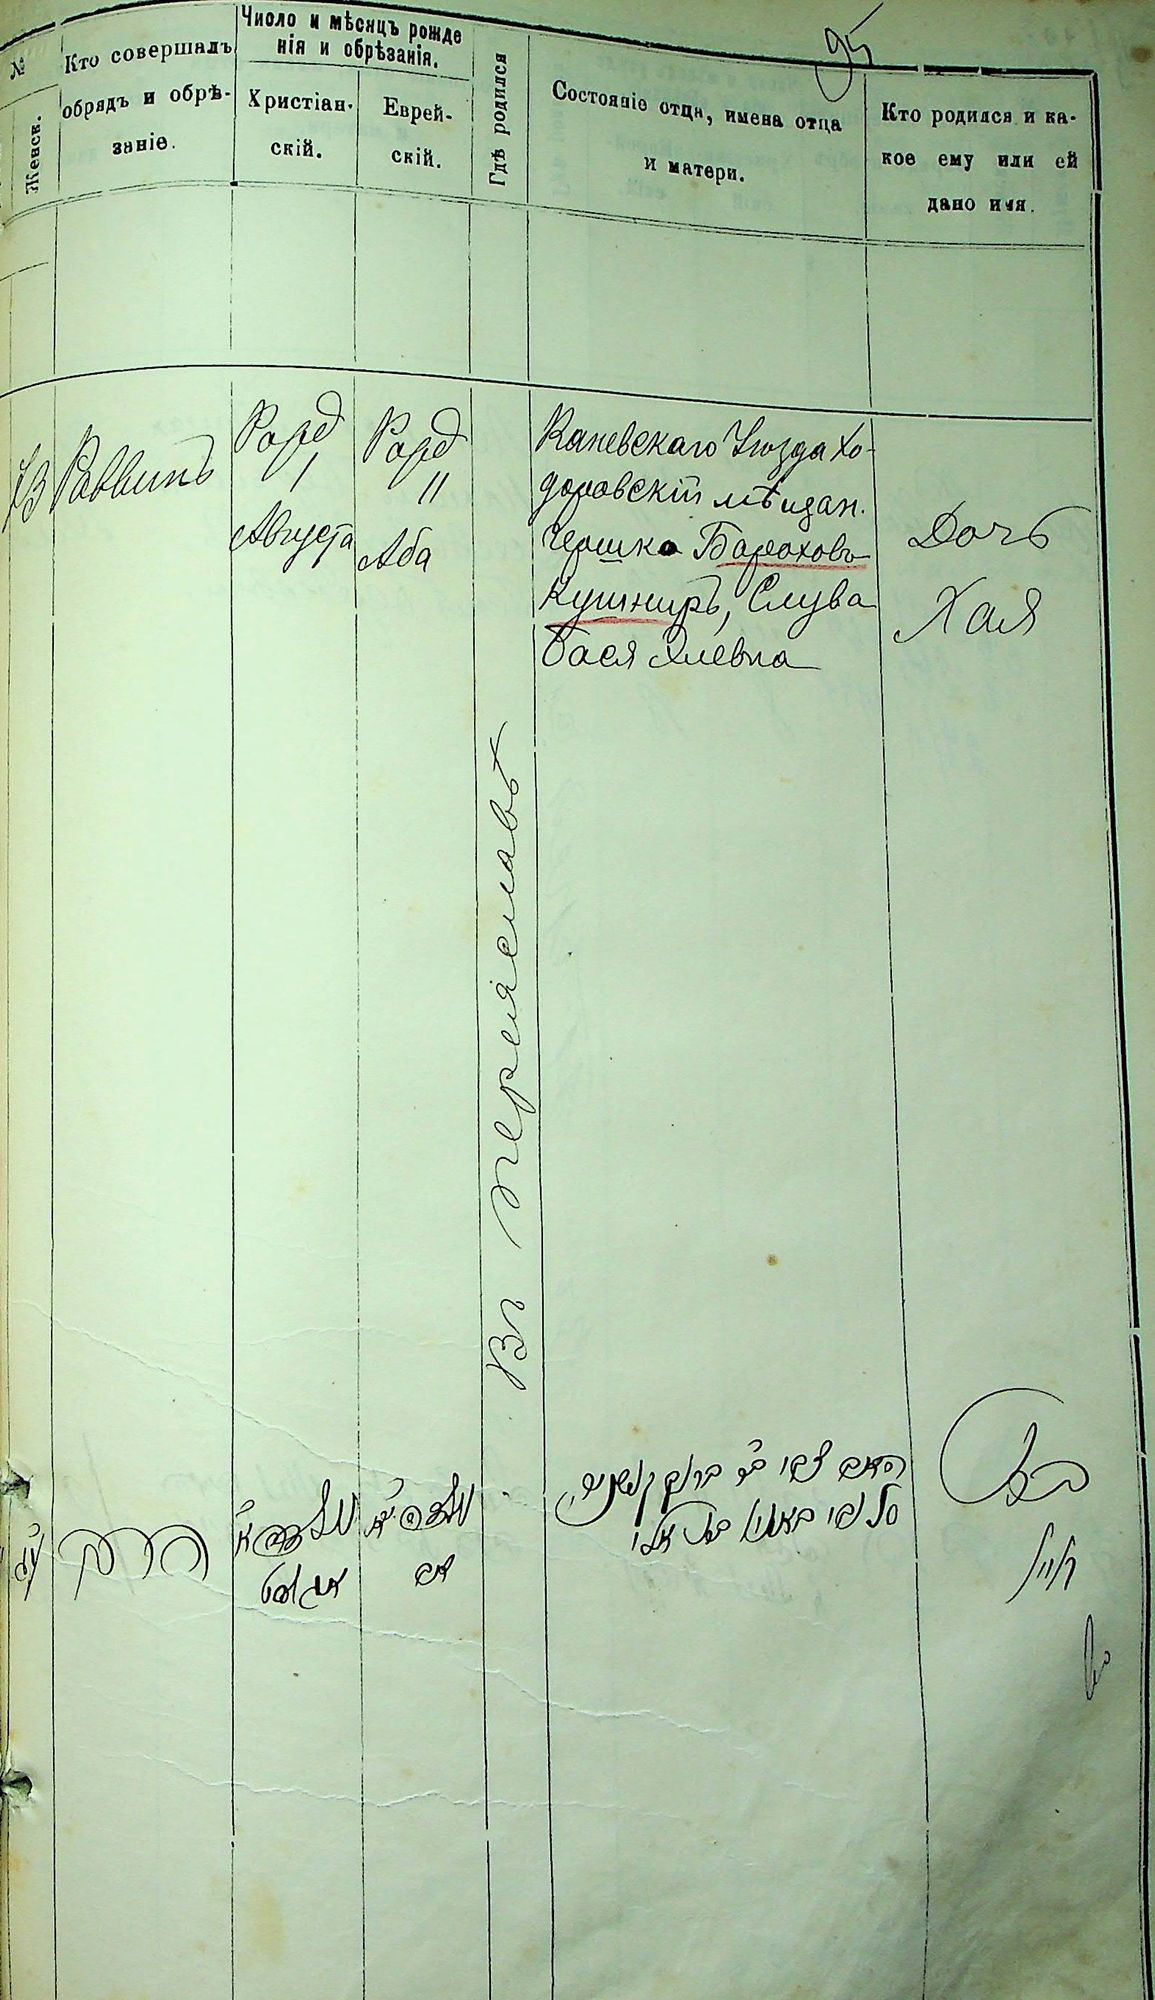 95
№
Женск.
Кто совершалъ
обрядъ и обрѣ-
заніе.
Число и мѣсяцъ рожде
нія и обрѣзанія.
Христіан-
скій.
Еврей-
скій.
Гдѣ родился
Состояніе отца, имена отца
и матери.
Кто родился и ка-
кое ему или ей
дано имя.
Раввинъ
Рожд
1
Августа
Рожд
11
Аба
Въ Переяславѣ
Каневскаго Уѣзда Хо-
доровскій мѣщан.
Гершко Бороховъ
Кушниръ, Слува
Бася Элевна
Дочь
Хая
הרב
נולדה א׳
אוגוסט
נולדה י״א
אב
האב צבי בר ברוך קושניר,
בת
חיה